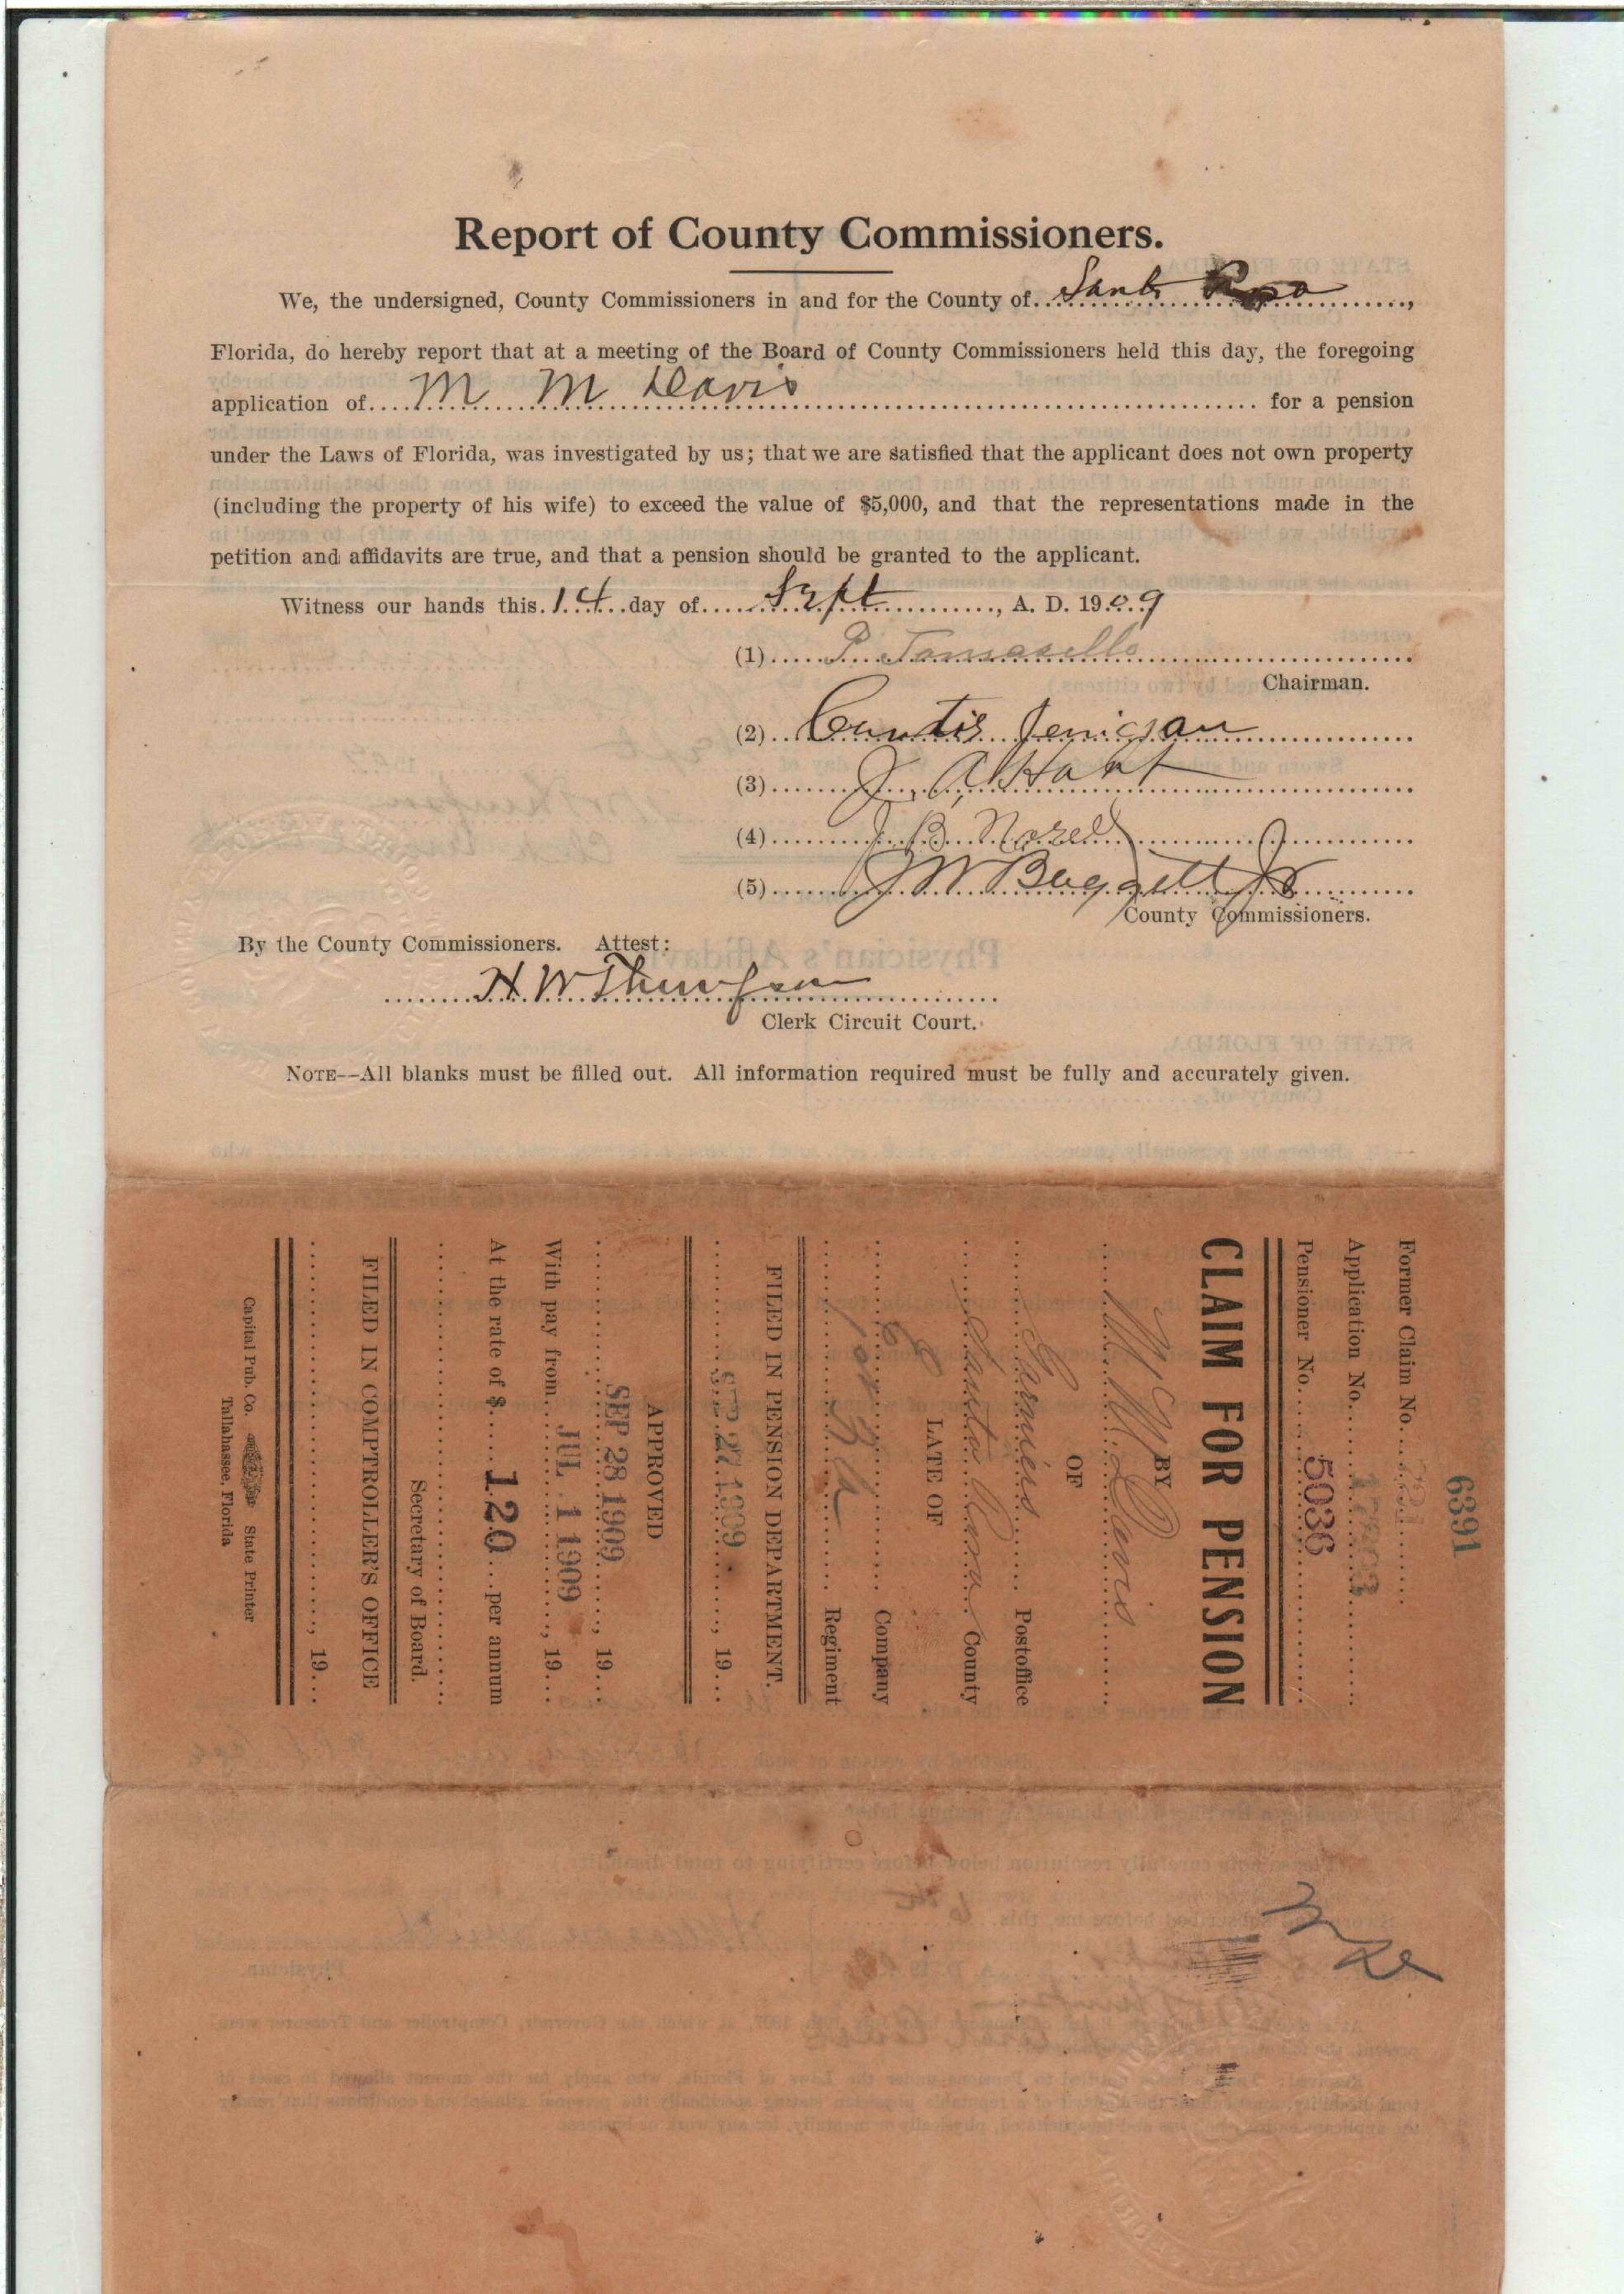 Report of County Commissioners.
We, the undersigned, County Commissioners in and for the County of Santa Rosa,
Florida, do hereby report that at a meeting of the Board of County Commissioners held this day, the foregoing
application of M M Davis for a pension
under the Laws of Florida, was investigated by us; that we are satisfied that the applicant does not own property
(including the property of his wife) to exceed the value of $5,000, and that the representations made in the
petition and affidavits are true, and that a pension should be granted to the applicant.
Witness our hands this 14 day of Sept, A. D. 1909
(1) P Tomasello
Chairman.
(2) Curtis Jernigan
(3) J. A.
(4) J. B.
(5) J W Baggett Jr
County Commissioners.
By the County Commissioners. Attest:
H. W. Thompson
Clerk Circuit Court.
NOTE--All blanks must be filled out. All information required must be fully and accurately given.
6391
Former Claim No.
Application No.
Pensioner No. 5036
CLAIM FOR PENSION
BY
M M Davis
OF
Garniers Postoffice
Santa Rosa County
LATE OF
Company
Regiment
FILED IN PENSION DEPARTMENT.
SEP 27 1909, 19
APPROVED
SEP 28 1909, 19
With pay from JUL 1 1909, 19
At the rate of $ 120 per annum
Secretary of Board.
FILED IN COMPTROLLER'S OFFICE
, 19
Capital Pub. Co. State Printer
Tallahassee, Florida